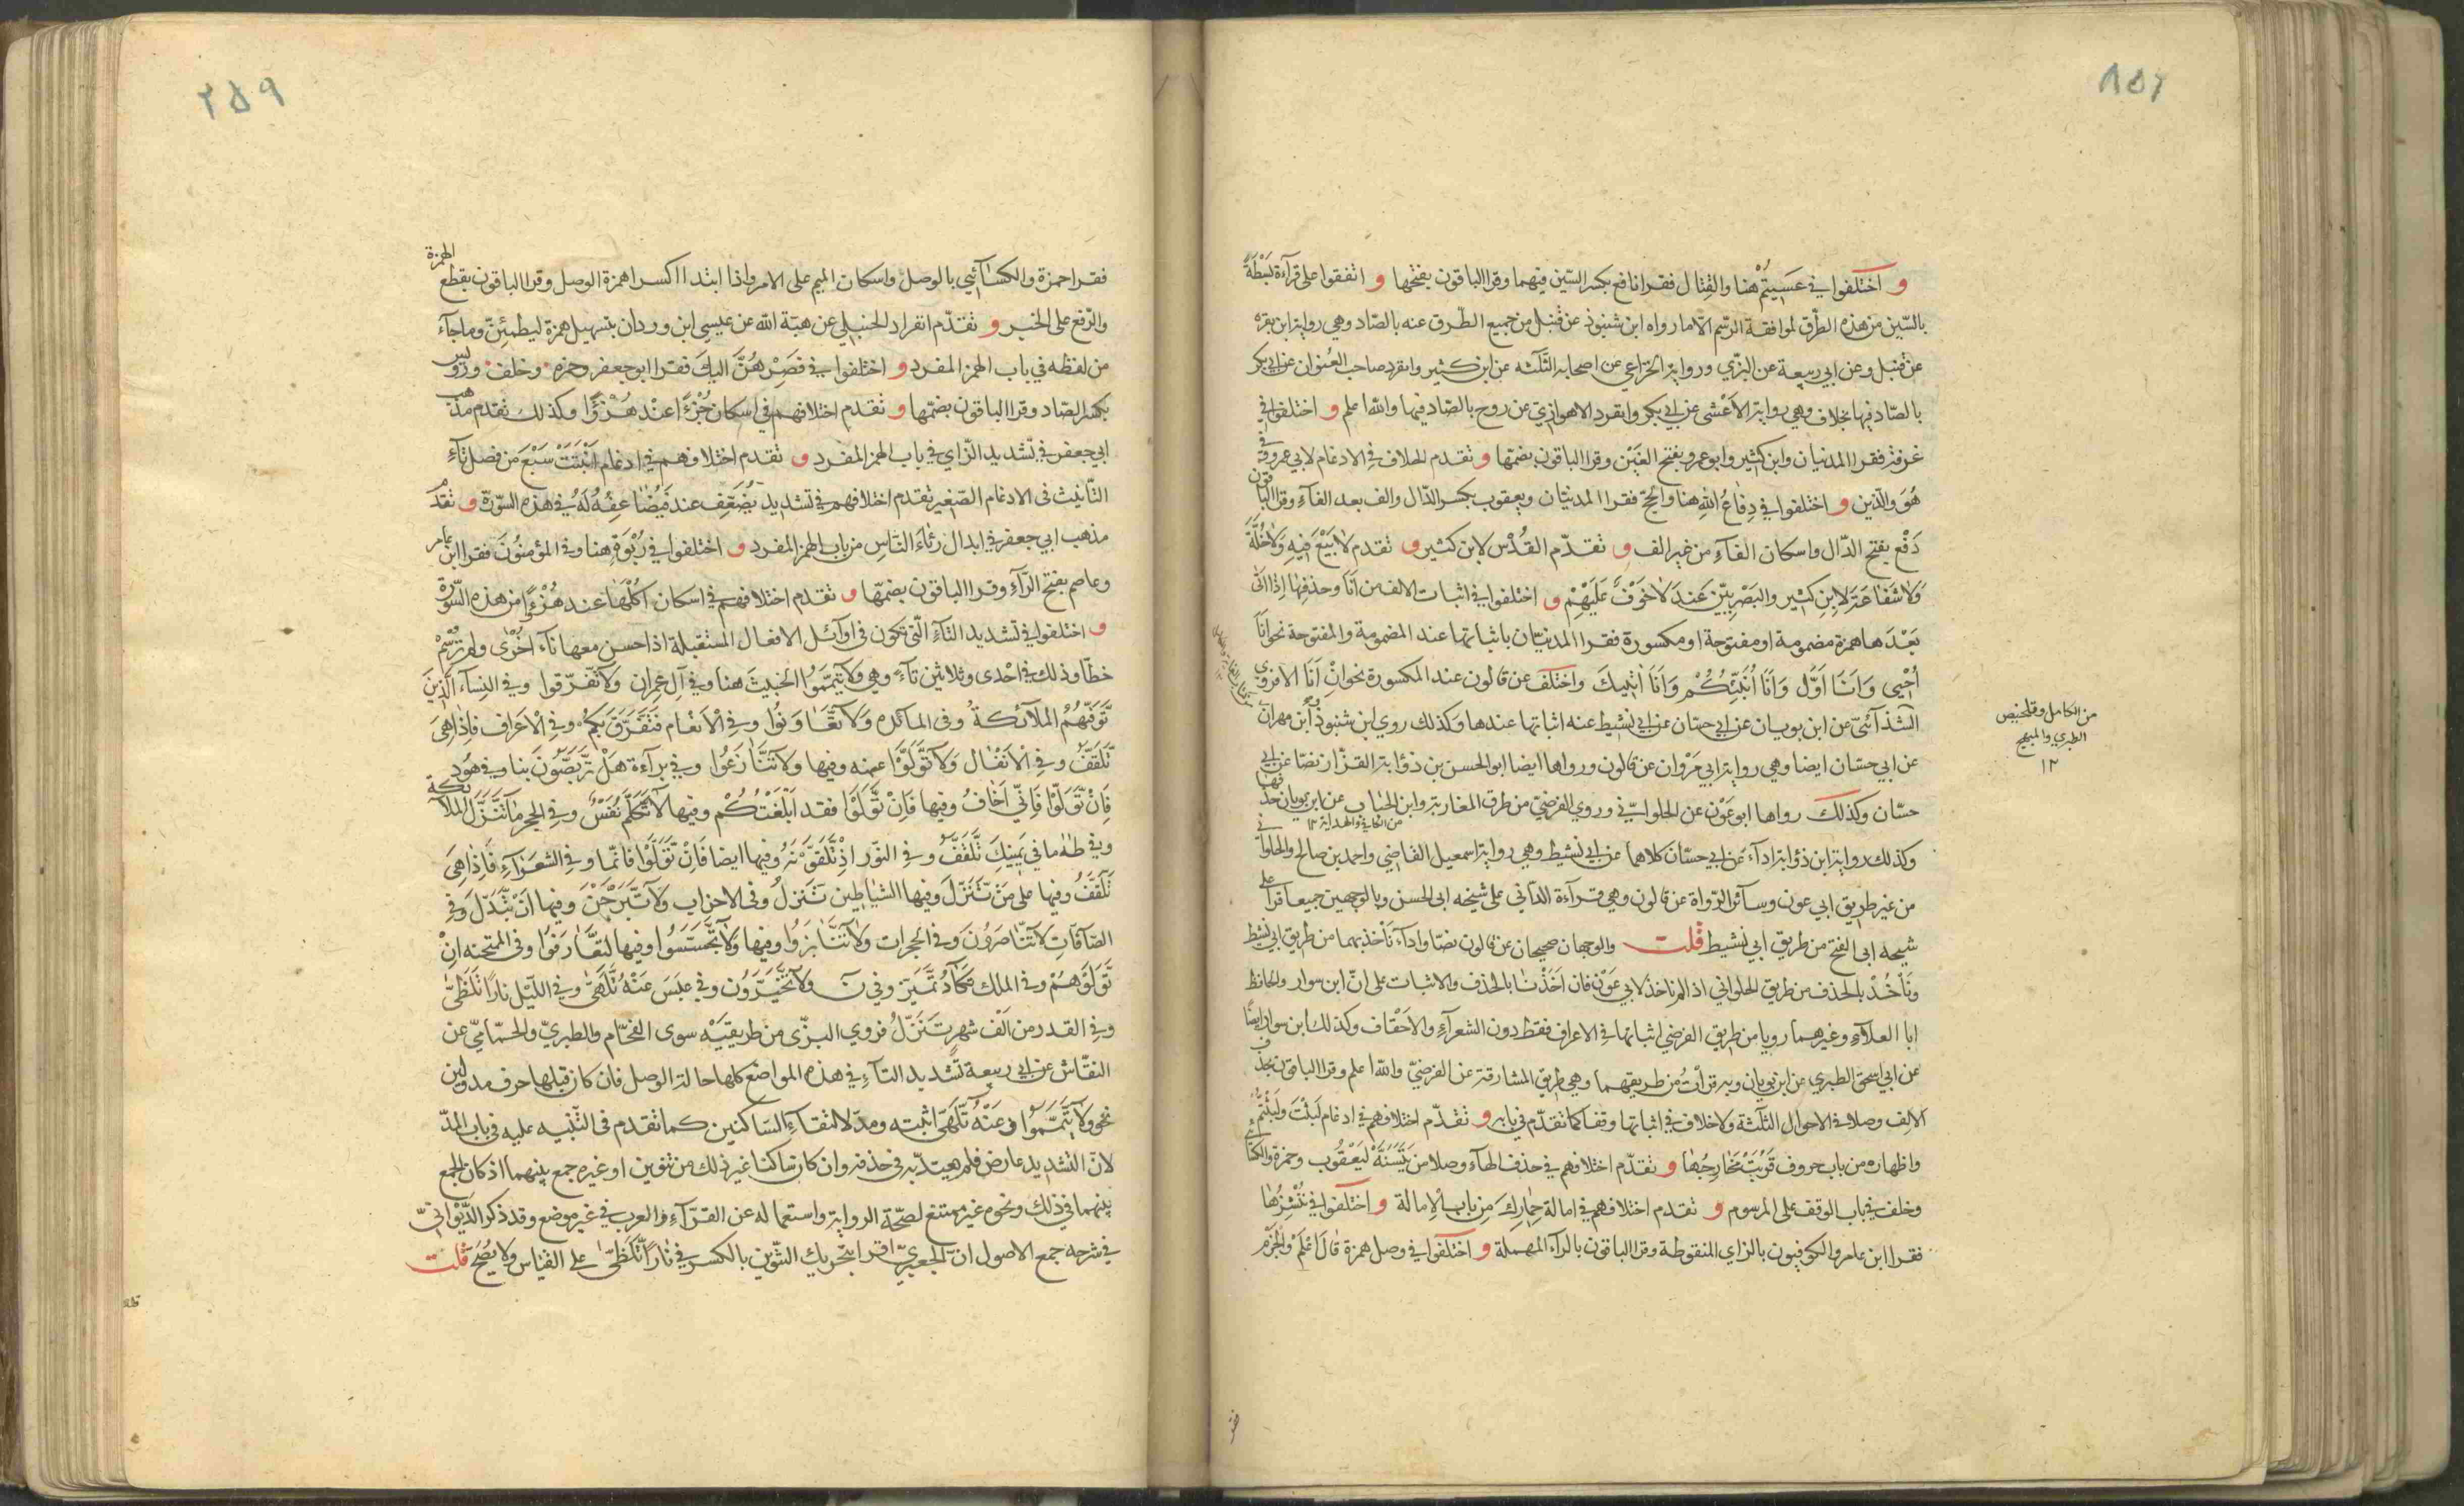 ٢٥٨
و اختلفوا في عَسَيتُمْ هنا والقِتال فقرا نافع بكسر السّين فيهما وقرا الباقون بفتحها و اتفقوا على قرآءة بَسْطَةً
بالسّين من هذه الطرُق لموافقة الرّسم الا ما رواه ابن شنبوذ عن قنبل من جميع الطّرق عنه بالصّاد وهي رواية ابن بقره
عن قنبل وعن ابي ربيعة عن البزّي ورواية الخزاعي عن اصحابه الثّلثه عن ابن كثير وانفرد صاحب العُنوان عن ابي بكر
بالصّاد فيها بخلاف وهي رواية الاَعْشى عن ابي بكر وانفرد الاهوازي عن روح بالصّاد فيها والله اعلم و اختلفوا في
غرفة فقرا المدنيان وابن كثير وابو عمرو بفتح الغَيْن وقرا الباقون بضمّها و تقدم الخلاف في الادغام لابي عمرو في
هُوَ والّذين و اختلفوا في دِفٰاعُ اللهِ هنا والحجّ فقرا المدنيّان ويعقوب بكسر الدّال والف بعد الفآءِ وقرا الباقون
دَفْع بفتح الدّال واسكان الفآءِ من غير الف و تقدّم القُدْس لابن كثير و تقدم لٰا بَيْعَ فِيهِ وَلٰا خُلَّةَ
وَلٰا شَفٰاعَةَ لابنِ كثير والبَصْريّين عَندَ لٰا خَوْفٌ عَلَيْهِمْ و اختلفوا في اثبات الالف من اَنَا وحذفها اِذا اتٰى
بَعْدَها همزة مضمومة او مفتوحة او مكسورة فقرا المدنيّان باثباتها عند المضمومة والمفتوحة نحو اَنَا
اُحْيِي وَاَنَا اَوَّل وَاَنَا اُنَبِّئُكُمْ وَاَنَا اٰتِيكَ واختلف عن قالون عند المكسورة نحو اِنْ اَنَا الا فروي
الشّذآئيّ عن ابن بويان عن ابي حسّان عن ابي نشيط عنه اثباتها عندها وكذلك روي ابن شنبوذ اُبن مهران
عن ابي حسّان ايضا وهي رواية ابي مَرْوان عن قالون ورواها ايضا ابو الحسن بن ذؤابة القزّاز نصّا عن ابي
حسّان وكذلك رواها ابو عَوْن عن الحلوانيّ وروي الفرضيّ من طرق المغاربة وابن الحُباب عن ابن بويان حذفها
من الكافي والهداية ١٢
وكذلك رواية ابن ذؤابة ادآءً عن ابي حسّان كلاهما عن ابي نشيط وهي رواية اسمعيل القاضي واحمد بن صالح والحلواني
من غير طريق ابي عون وسآئر الرّواة عن قالون وهي قرآءة الدّاني على شيخه ابي الحسن وبالوجهين جميعا قرا على
شيخه ابي الفتح من طريق ابي نشيط قلت والوجهان صحيحان عن قالون نصّا وادآءً نأخذ بهما من طريق ابي نشيط
ونأخُذْ بالحذف من طريق الحلواني اذا لم ناخذ لابي عَوْن فان اَخَذْنا بالحذف والاثبات على انّ ابن سوار والحافظ
ابا العلآءِ وغيرهما رويا من طريق الفرضي اثباتها في الاعراف فقط دون الشعرآءِ والاَحْقاف وكذلك ابن سوار ايضًا
عن ابي اسحٰق الطبري عن ابن بويان وبه قرأتُ من طريقهما وهي طريق المشارقة عن الفرضيّ والله اعلم وقرا الباقون بحذف
الالِف وصلا في الاحوال الثّلثة ولا خلاف في اثباتها وقفا كما تقدّم في بابه و تقدّم اختلافهم في ادغام لَبِثْتَ وَلَبِثْتُمْ
واظهاره من باب حروف قَرُبَتْ مَخٰارِجُهٰا و تقدّم اختلافهم في حذف الهآءِ وصلا من يَتَسَنَّهْ ليَعْقُوب وحمزة والكسآئي
وخلف في باب الوقف على المرسوم و تقدم اختلافهم في امالة حِمٰارِكَ مِن باب الاِمالة و اختلفوا في نُنْشِزُهٰا
فقرا ابن عامر والكوفيون بالزاي المنقوطة وقرا الباقون بالرآءِ المهملة و اختلفوا في وصل همزة قٰالَ اعْلَمْ والجَزْم
من الكامل وتلخيص
الطبري والمبهج
١٢
٢٥٩
فقرا حمزة والكسآئيي بالوصل واسكان الميم على الامر واذا ابتدا اكسرا همزة الوصل وقرا الباقون بقطع الهمزة
والرّفع على الخبر و تقدّم انفراد الحنبلي عن هبة الله عن عيسى ابن وردان بتسهيل همزة ليطمئِنّ وما جآءَ
من لفظه في باب الهمز المفرد و اختلفوا في فصِرْهُنَّ اليكَ فقرا ابو جعفر وحمزه وخلف ورويس
بكسر الصّاد وقرا الباقون بضمّها و تقدم اختلافهم في اسكان جُزْءًا عند هُزْوًا وكذلك تقدم مذهب
ابي جعفر في تشديد الزّاي في باب الهمز المفرد و تقدم اختلافهم في ادغام اَنْبَتَتْ سَبْعَ من فصل تآءِ
التّأنيث في الادغام الصّغير تقدم اختلافهم في تشديد يُضَعِّف عند فَيُضٰاعِفَهُ لَهُ في هذه السّورة و تقدّم
مذهب ابي جعفر في ابدال رئٰاءَ النّاسِ من باب الهمز المفرد و اختلفوا في رُبْوَةٍ هنا وفي المؤمنُونَ فقرا ابن عامر
وعاصم بفتح الرّآءِ وقرا الباقون بضمّها و تقدم اختلافهم في اسكان اُكُلُهٰا عند هُزُءًا من هذه السّورة
و اختلفوا في تشديد التآءِ الّتي تكون في اوآئل الافعال المستقبلة اذا حسن معها تآء اُخْرٰى ولم تُرْسَمْ
خطًّا وذلك في اِحْدى وثلاثين تآءً وهي وَلٰا تَيَمَّمُوا الخبيثَ هنا وفي آلِ عِمرانِ وَلٰا تَفَرَّقوا وفي النِسآء الَّذِينَ
تَوَفّٰيهُمُ الملآئكةُ وفي المآئده وَلٰا تَعٰاوَنُوا وفي الْاَنْعٰام فَتَفَرَّقَ بِكُم وفي الْاَعْراف فاِذٰا هِيَ
تَلْقَفُ وفي الْاَنْفٰال وَلٰا تَوَلَّوْا عنه وفيها وَلٰا تَنٰازَعُوا وفي برآءة هَلْ تَرَبَّصُونَ بنا وفي هُود
فَاِنْ تَوَلَّوْا فَاِنِّي اَخٰافُ وفيها فَاِنْ تَوَلَّوْا فقد اَبْلَغْتُكُم وفيها لٰا تَكَلَّمُ نَفْسٌ وفي الحجر مٰا تَنَزَّلُ الملآئكة
وفي طٰهٰ ما في يَمِينِكَ تَلَقَّفُ وفي النّور اِذْ تَلَقَّوْنَهُ وفيها ايضا فَاِنْ تَوَلَّوْا فانّما وفي الشعَرٰآءِ فَاِذٰا هِيَ
تَلَقَّفُ وفيها على مَنْ تَنَزَّلَ وفيها الشيٰاطِين تَنَزَّلُ وفي الاحزاب وَلٰا تَبَرَّجْنَ وفيها اَنْ تَبَدَّلَ وَفي
الصّآفّاتِ لٰا تَنٰاصَرُونَ وفي الحُجرات وَلٰا تَنٰابَزُوا وفيها وَلٰا تَجَسَّسُوا وفيها لتعٰارَفُوا وفي الممتحنه اَنْ
تَوَلَّوْهُمْ وفي الملك تَكٰادُ تَمَيَّز وفي نٓ لمٰا تَخَيَّرُونَ وفي عبَسَ عَنْهُ تَلَهّٰى وفي اللّيْل نارًا تَلَظّٰى
وفي القدر من اَلْف شهرٍ تَنَزَّلُ فروي البزّي من طريقَيْه سوى الفحّام والطبريّ والحمّاميّ عن
النقّاش عن ابي ربيعة تشديد التآءِ في هذه المواضع كلها حالة الوصل فان كان قبلها حرف مد ولين
نحو وَلٰا تَيَمَّمُوا وعَنْهُ تَلَهّٰى اثبته ومدّ لالتقآءِ السّاكنين كما تقدم في التّنبيه عليه في باب المدّ
لانّ التشديد عارض فلم يعتدّ به في حذفه وان كان ساكنا غير ذلك من تنوين او غيره جمع بينهما اذ كان الجمع
بينهما في ذلك ونحوه غير ممتنع لصحّة الرواية واستعماله عن القرّآءِ والعرب في غير موضع وقد ذكر الدّيْوانيّ
في شرحه جمع الاصول انّ الجعبريّ اقرا بتحريك التنوين بالكسر في نٰارًا تَلَظّٰى على القياس ولا يصُحّ قلت